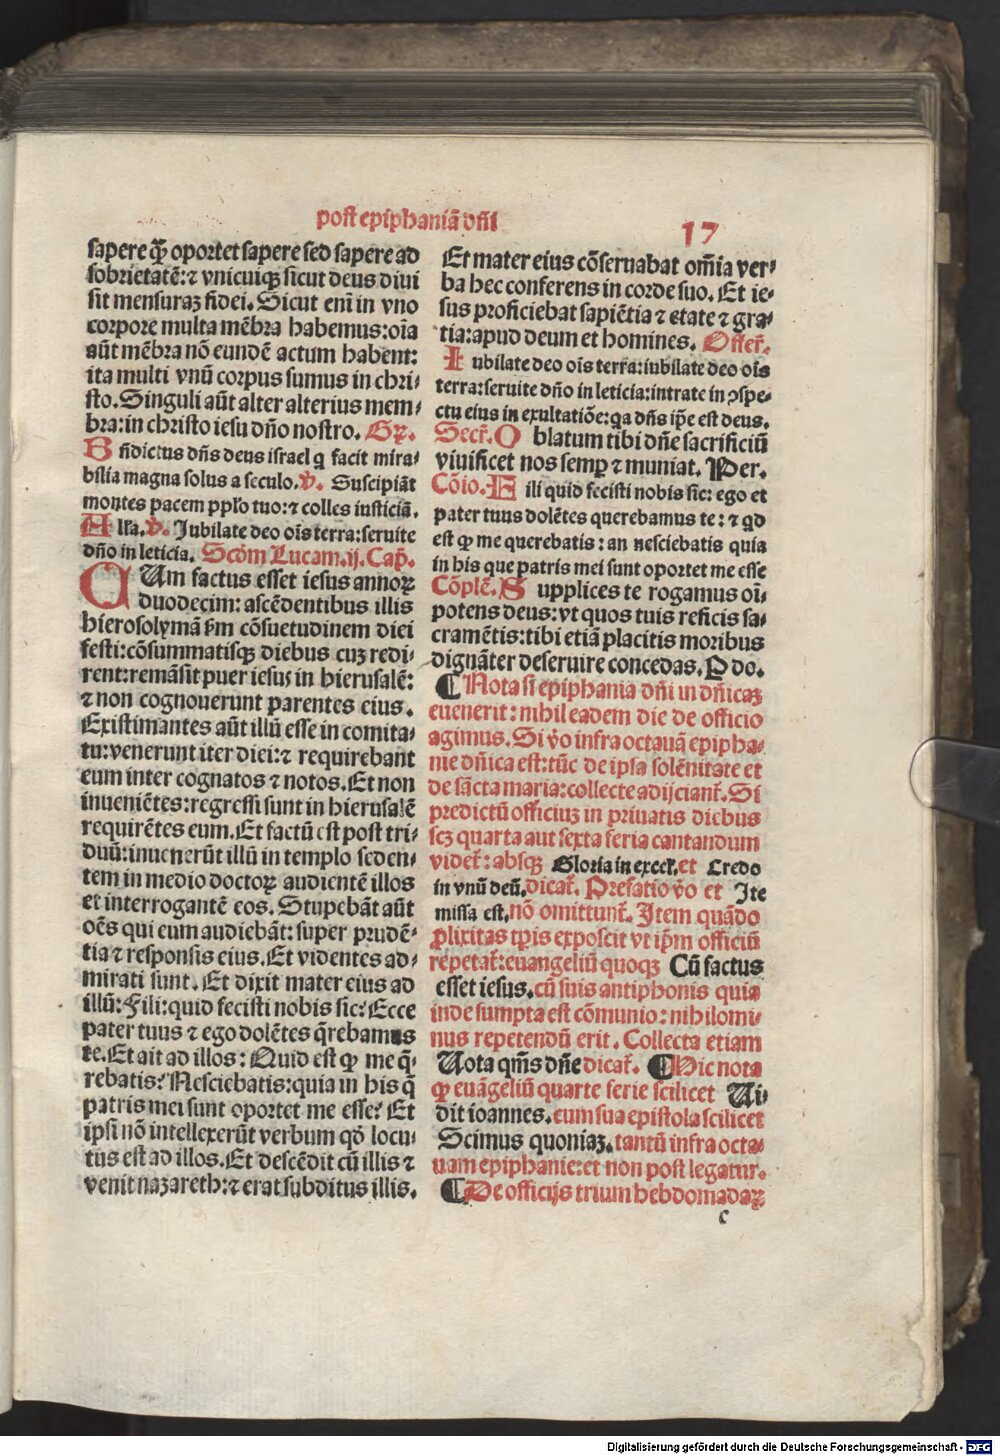 post epiphaniā dñi
17
sapere q̄ꝫ oportet sapere sed sapere ad
sobrietatē: ⁊ vnicuiqꝫ sicut deus diui
sit mensuraꝫ fidei. Sicut eni in vno
corpore multa mēbra habemus: oīa
aūt mēbra nō eundē actum habent:
ita multi vnū corpus sumus in chri⸗
sto. Singuli aūt alter alterius mem⸗
bra: in christo iesu dño nostro. Gꝛ.
Bñdictus dñs deus israel q facit mira⸗
bilia magna solus a seculo. v̄. Suscipiāt
montes pacem pplo tuo: ⁊ colles iusticiā.
Alľa. v̄. Jubilate deo oīs terra: seruite
dño in leticia. Scōm Lucam. ij. Cap̄.
CUm factus esset iesus annoꝝ
duodecim: ascēdentibus illis
hierosolymā ẜm cōsuetudinem diei
festi: cōsummatisqꝫ diebus cuꝫ redi⸗
rent: remāsit puer iesus in hierusalē:
⁊ non cognouerunt parentes eius.
Existimantes aūt illū esse in comita⸗
tu: venerunt iter diei: ⁊ requirebant
eum inter cognatos ⁊ notos. Et non
inueniētes: regressi sunt in hierusalē
requirētes eum. Et factū est post tri⸗
duū: inuenerūt illū in templo seden⸗
tem in medio doctoꝝ audientē illos
et interrogantē eos. Stupebāt aūt
oēs qui eum audiebāt: super prudē⸗
tia ⁊ responsis eius. Et videntes ad⸗
mirati sunt. Et dixit mater eius ad
illū: Fili: quid fecisti nobis sic? Ecce
pater tuus ⁊ ego dolētes q̄rebamus
te. Et ait ad illos: Quid est ꝙ me q̄⸗
rebatis? Nesciebatis: quia in his q̄
patris mei sunt oportet me esse? Et
ipsi nō intellexerūt verbum qď locu⸗
tus est ad illos. Et descēdit cū illis ⁊
venit nazareth: ⁊ erat subditus illis.
Et mater eius cōseruabat om̄ia ver⸗
ba hec conferens in corde suo. Et ie⸗
sus proficiebat sapiētia ⁊ etate ⁊ gra⸗
tia: apud deum et homines. Offer̄.
Iubilate deo oīs terra: iubilate deo oīs
terra: seruite dño in leticia: intrate in ꝯspe⸗
ctu eius in exultatiōe: qa dñs ip̄e est deus.
Secr̄. Oblatum tibi dñe sacrificiū
viuificet nos semꝑ ⁊ muniat. Per.
Cōio. Fili quid fecisti nobis sic: ego et
pater tuus dolētes querebamus te: ⁊ qd
est ꝙ me querebatis: an nesciebatis quia
in his que patris mei sunt oportet me esse
Cōplē. Supplices te rogamus oī⸗
potens deus: vt quos tuis reficis sa⸗
cramētis: tibi etiā placitis moribus
dignāter deseruire concedas. P do.
¶ Nota si epiphania dñi in dñicaꝫ
euenerit: nihil eadem die de officio
agimus. Si v̊o infra octauā epipha⸗
nie dñica est: tūc de ipsa solēnitate et
de sācta maria: collecte adijciant̄. Si
predictū officiuꝫ in priuatis diebus
scꝫ quarta aut sexta feria cantandum
videt̄: absqꝫ Gloria in excel. et Credo
in vnū deū. dicat̄. Prefatio v̊o et Ite
missa est. nō omittunt̄. Item quādo
ꝓlixitas tꝑis exposcit vt ip̄m officiū
repetat̄: euangeliū quoqꝫ Cū factus
esset iesus. cū suis antiphonis quia
inde sumpta est cōmunio: nihilomi⸗
nus repetendū erit. Collecta etiam
Uota qm̄s dñe dicat̄. ¶ Hic nota
ꝙ euāgeliū quarte ferie scilicet Ui⸗
dit ioannes. cum sua epistola scilicet
Scimus quoniaꝫ. tantū infra octa⸗
uam epiphanie: et non post legatur.
¶ De officijs trium hebdomadaꝝ
c
Digitalisierung gefördert durch die Deutsche Forschungsgemeinschaft - DFG